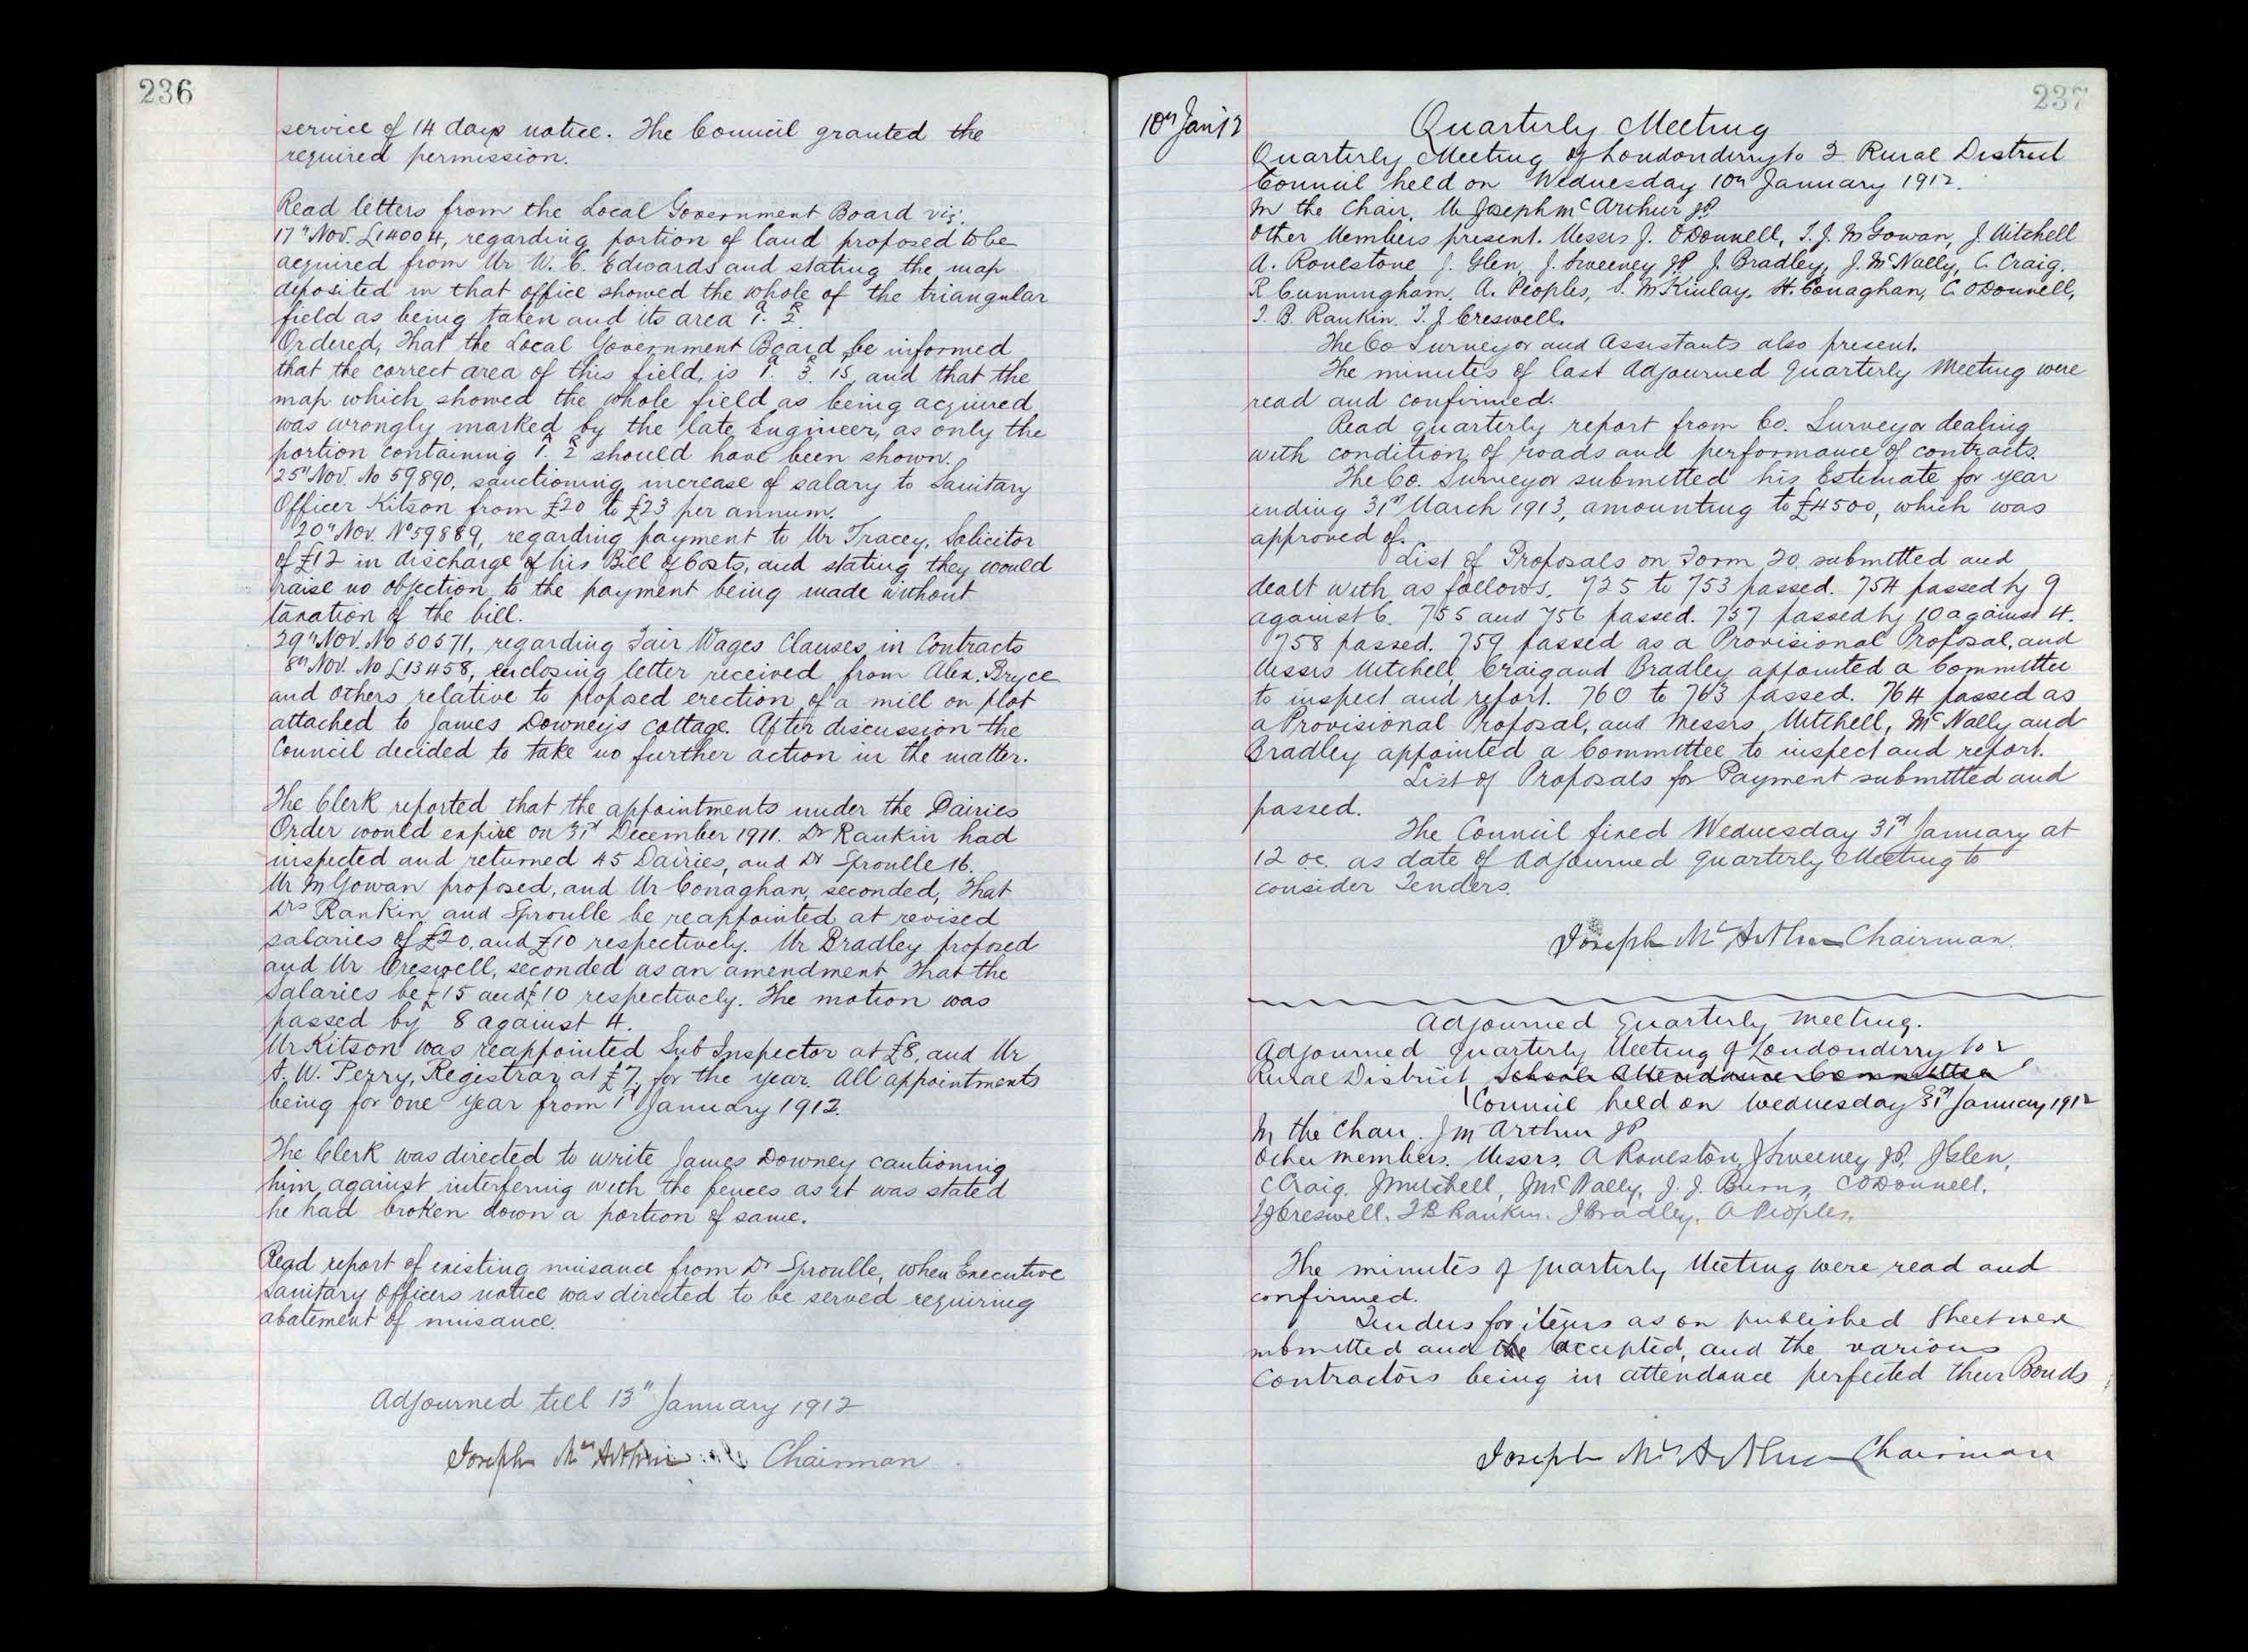 236
service of 14 days notice. The Council granted the
required permission.
Read letters from the Local Government Board viz.
17th Nov. £14004, regarding portion of land proposed to be
acquired from Mr W. C. Edwards and stating the map
deposited in that office showed the whole of the triangular
field as being taken and its area 1A. 2R.
Ordered, That the Local Government Board be informed
that the correct area of this field, is 1A. 3R. 15P, and that the
map which showed the whole field as being acquired
was wrongly marked by the late Engineer, as only the
portion containing 1A. 2R should have been shown.
25th Nov. No 59890, sanctioning increase of salary to Sanitary
Officer Kitson from £20 to £23 per annum.
20th Nov. No 59889, regarding payment to Mr Tracey, Solicitor
of £12 in discharge of his Bill of Costs, and stating they would
raise no objection to the payment being made without
taxation of the bill.
29th Nov. No 50571, regarding Fair Wages Clauses in Contracts
8th Nov. No £13458, enclosing letter received from Alex. Bryce
and others relative to proposed erection of a mill on plot
attached to James Downey's cottage. After discussion the
Council decided to take no further action in the matter.
The Clerk reported that the appointments under the Dairies
Order would expire on 31st December 1911. Dr Rankin had
inspected and returned 45 Dairies, and Dr Sproulle 16.
Mr McGowan proposed, and Mr Conaghan, seconded, That
Drs Rankin and Sproulle be reappointed at revised
salaries of £20, and £10 respectively. Mr Bradley proposed
and Mr Creswell, seconded as an amendment That the
Salaries be £15 and £10 respectively. The motion was
passed by 8 against 4.
Mr Kitson was reappointed Sub Inspector at £8, and Mr
A. W. Perry, Registrar at £7, for the year. All appointments
being for one year from 1st January 1912.
The Clerk was directed to write James Downey cautioning
him against interfering with the fences as it was stated
he had broken down a portion of same.
Read report of existing nuisance from Dr Sproulle, when Executive
Sanitary Officers notice was directed to be served requiring
abatement of nuisance.
Adjourned till 13th January 1912
Joseph McArthur Chairman
237
10th Jan 12
Quarterly Meeting
Quarterly Meeting of Londonderry No 2 Rural District
Council held on Wednesday 10th January 1912.
In the Chair. Mr Joseph McArthur JP.
Other Members present. Messrs J. O'Donnell, T. J. McGowan, J. Mitchell
A. Roulstone, J. Glen, J. Sweeney JP. J. Bradley, J. McNally, C. Craig.
R Cunningham, A. Peoples, S. McKinlay, H. Conaghan, C. O'Donnell,
T. B. Rankin. T. J Creswell.
The Co Surveyor and Assistants also present.
The minutes of last Adjourned Quarterly Meeting were
read and confirmed.
Read quarterly report from Co. Surveyor dealing
with condition of roads and performance of contracts.
The Co. Surveyor submitted his Estimate for year
ending 31st March 1913, amounting to £4500, which was
approved of.
List of Proposals on Form 20, submitted and
dealt with as follows. 725 to 753 passed. 754 passed by 9
against 6. 755 and 756 passed. 757 passed by 10 against 4.
758 passed. 759 passed as a Provisional Proposal, and
Messrs Mitchell, Craig and Bradley appointed a Committee
to inspect and report. 760 to 763 passed. 764 passed as
a Provisional Proposal, and Messrs Mitchell, McNally and
Bradley appointed a Committee to inspect and report.
List of Proposals for Payment submitted and
passed.
The Council fixed Wednesday 31st January at
12 oc. as date of Adjourned Quarterly Meeting to
consider Tenders.
Joseph McArthur Chairman.
Adjourned Quarterly Meeting.
Adjourned Quarterly Meeting of Londonderry No 2
Rural District School Attendance Committee
Council held on Wednesday 31st January 1912
In the Chair. J McArthur JP
Other members. Messrs. A Roulston, J Sweeney JP, J Glen,
C Craig. J Mitchell, J McNally, J. J. Burns, C O'Donnell,
T J Creswell. T B Rankin. J Bradley. A Peoples.
The minutes of Quarterly Meeting were read and
confirmed.
Tenders for items as on published Sheet were
submitted and the accepted, and the various
Contractors being in attendance perfected their Bonds
Joseph McArthur Chairman